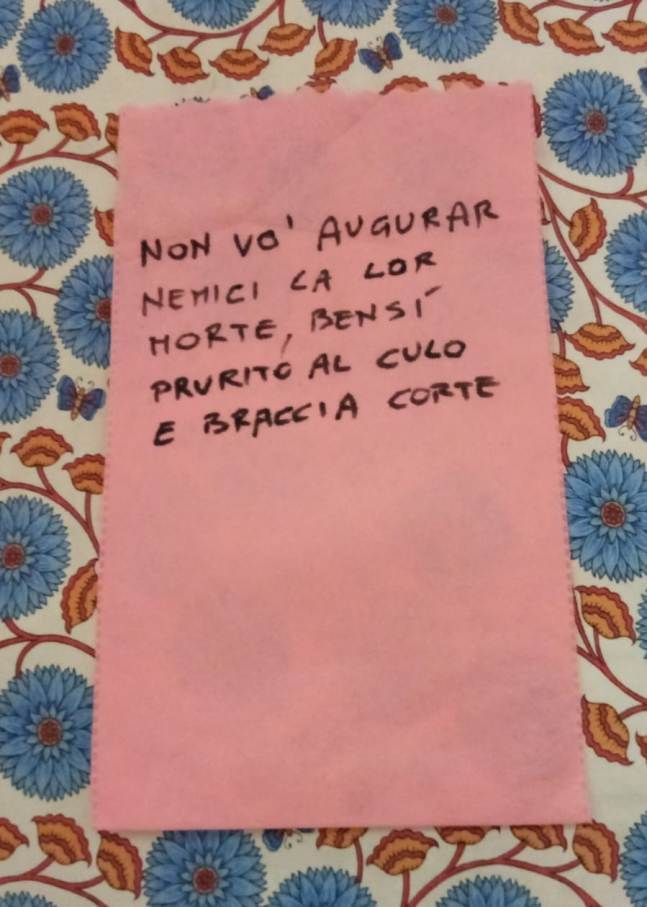 NON VO' AUGURAR
NEMICI LA LOR
MORTE, BENSÍ
PRURITO AL CULO
E BRACCIA CORTE